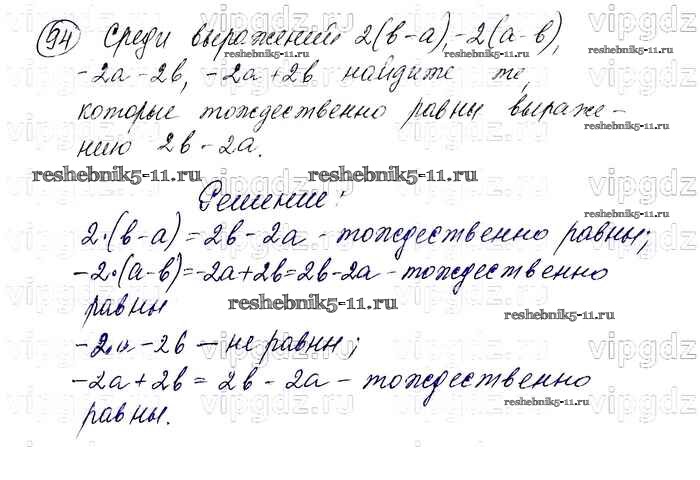 94 Среди выражений 2(в-а), -2(а-в),
-2а-2в, -2а+2в найдите те,
которые тождественно равны выраже-
нию 2в-2а.
reshebnik5-11.ru
Решение:
2·(в-а)=2в-2а - тождественно равны;
-2·(а-в)=-2а+2в=2в-2а - тождественно
равны
reshebnik5-11.ru
-2а-2в - не равны;
-2а+2в = 2в-2а - тождественно
равны.